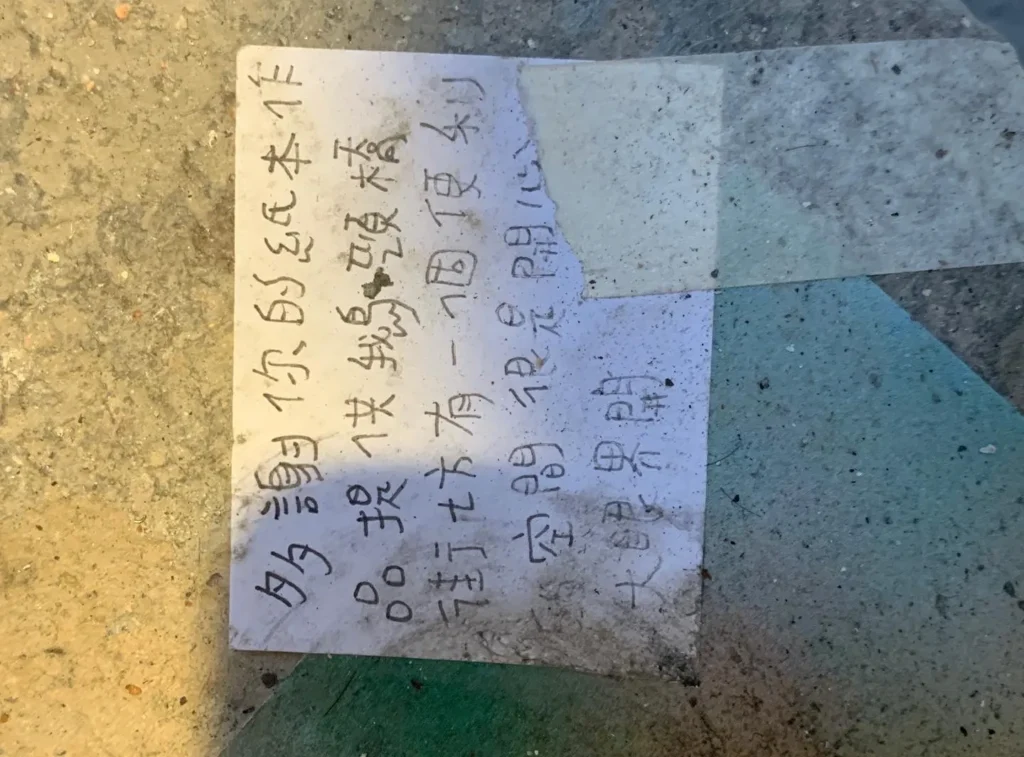 多謝你的紙本作
品提供鵝頸橋
街坊有一個便利
的空間很是開心
大眼界開